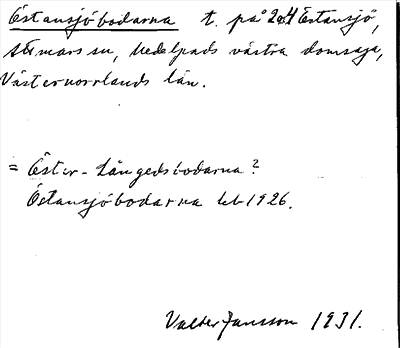 Östansjöbodarna t. på 2 o. 4 Östansjö,
Stöde sn, Medelpads västra domsaga,
Västernorrlands län.
= Öster-Långedsbodarna?
Östansjöbodarna kb 1926.
Valter Jansson 1931.